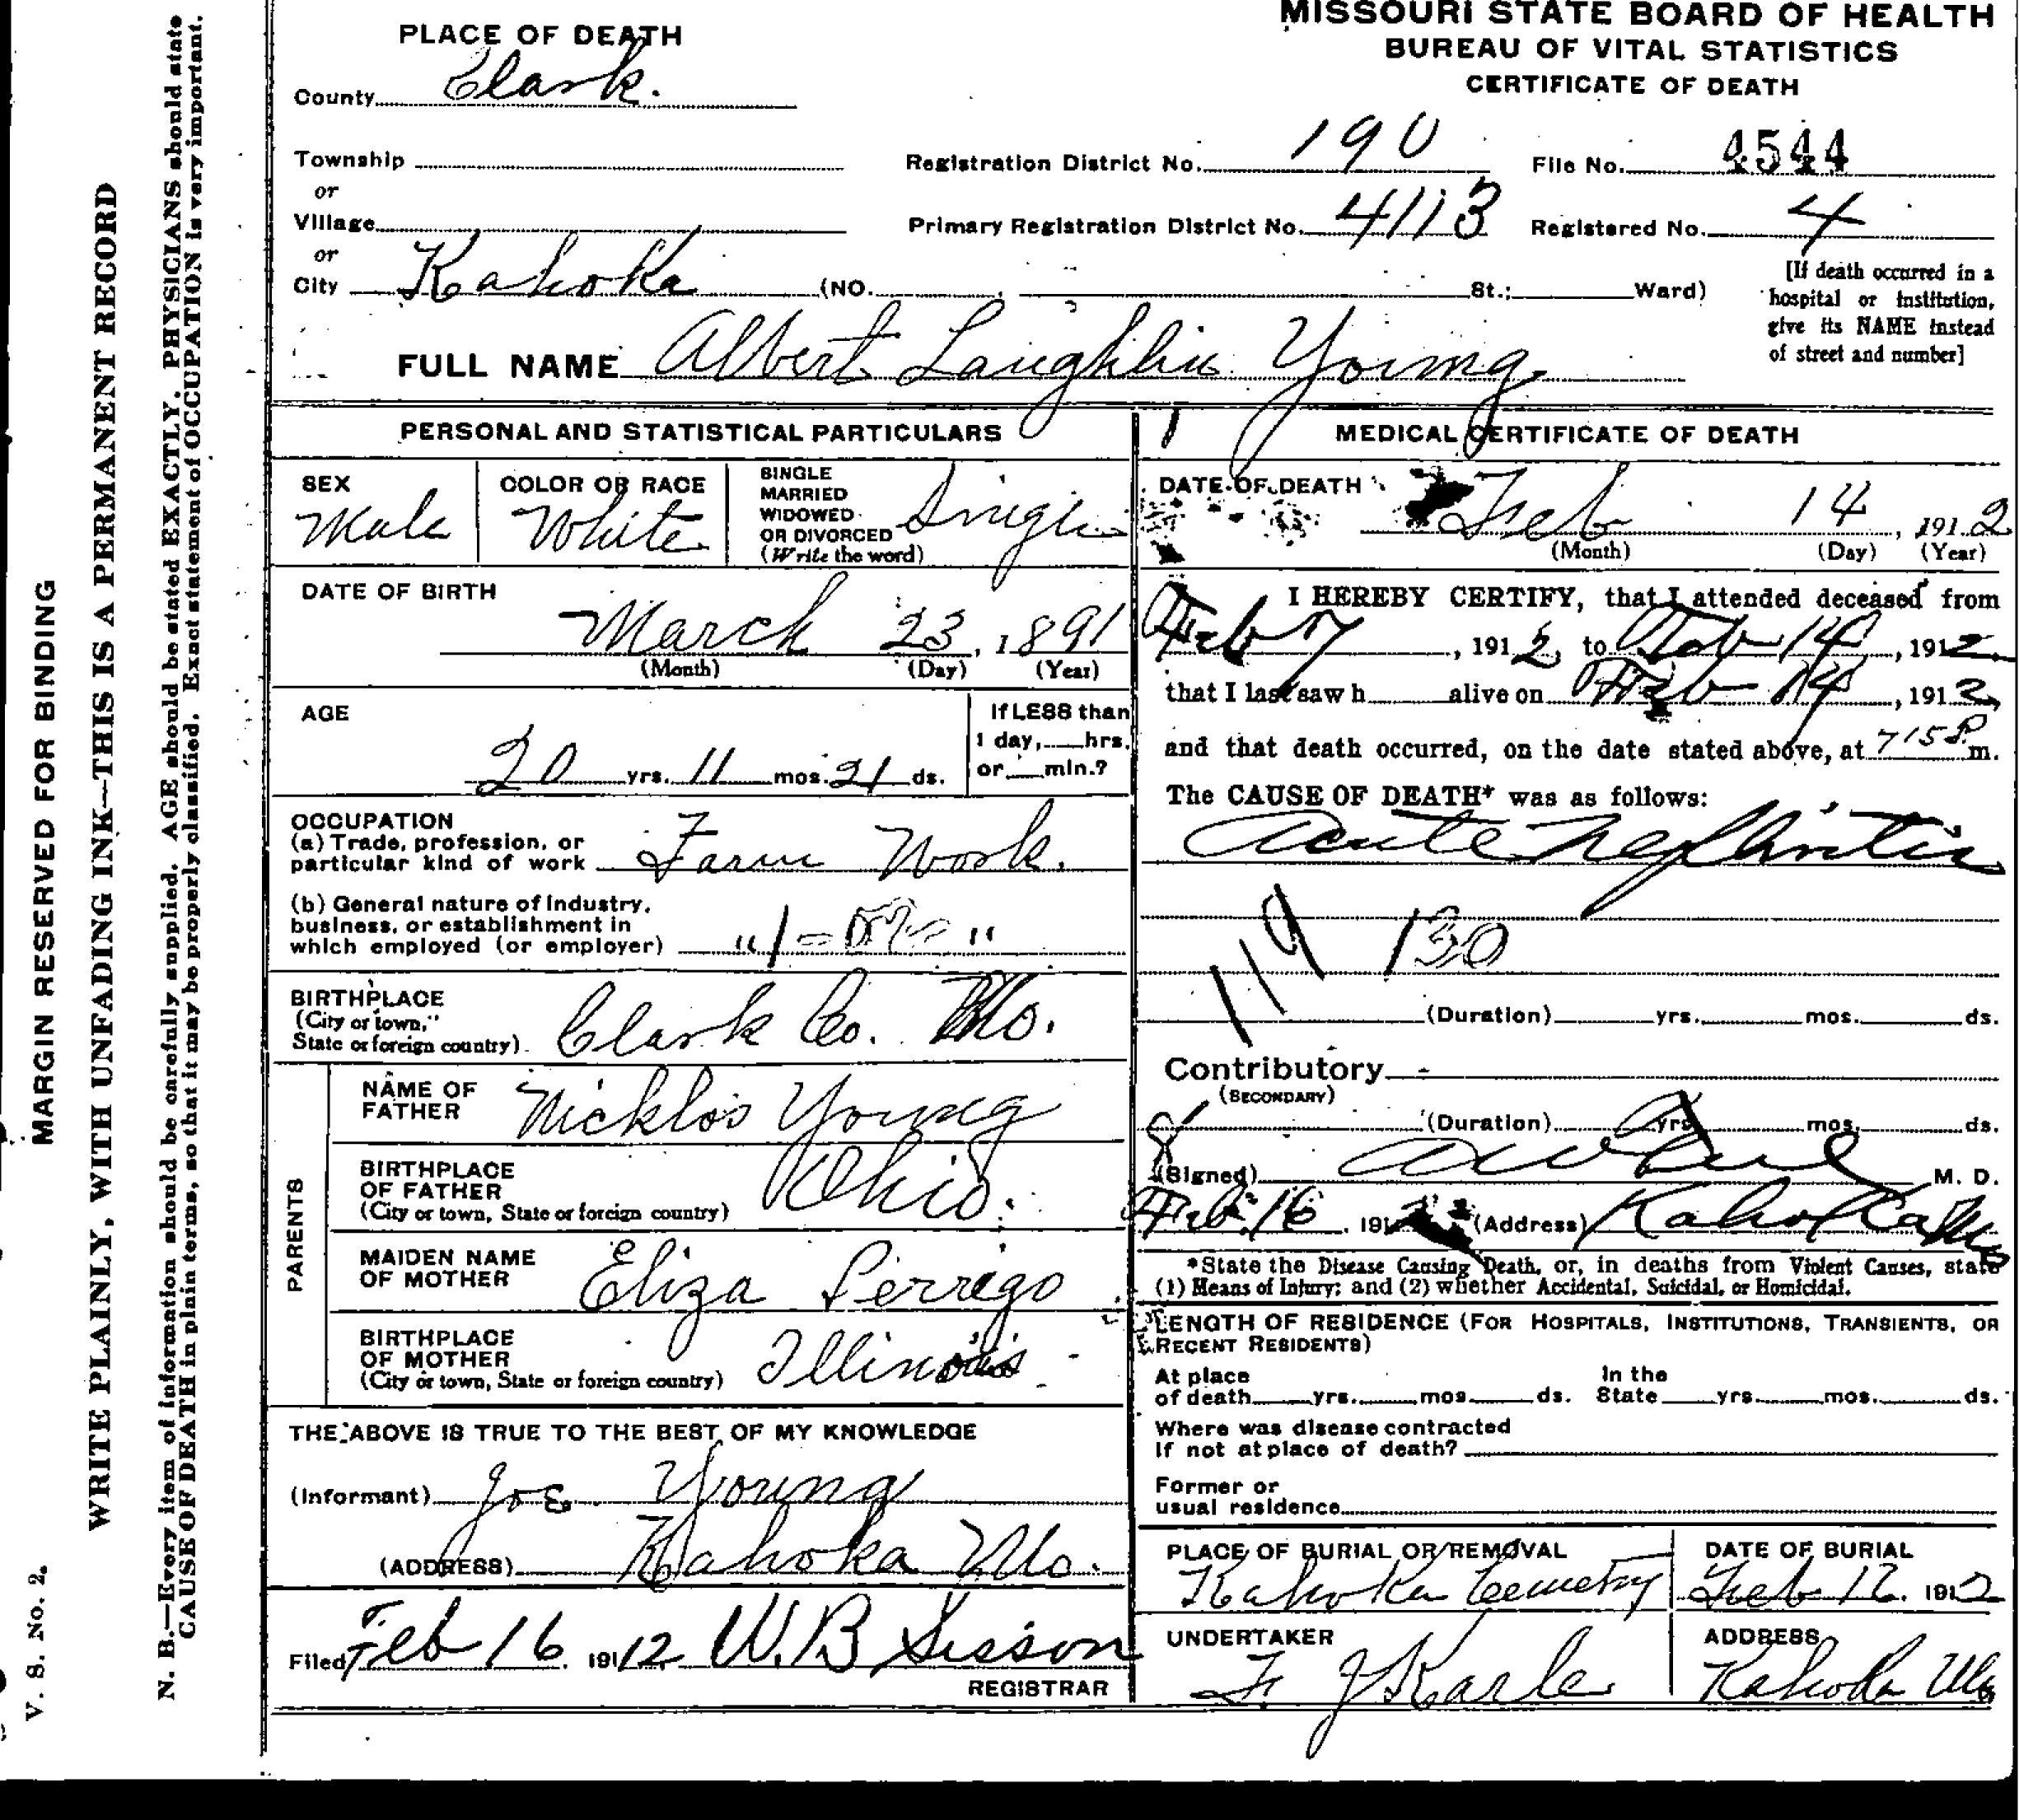 MISSOURI STATE BOARD OF HEALTH
BUREAU OF VITAL STATISTICS
CERTIFICATE OF DEATH
PLACE OF DEATH
County Clark.
Township
or
Village
or
City Kahoka (NO. St.; Ward)
Registration District No. 190 File No. 4544
Primary Registration District No. 4113 Registered No. 4
[If death occurred in a
hospital or institution,
give its NAME instead
of street and number]
FULL NAME Albert Laughlin Young
PERSONAL AND STATISTICAL PARTICULARS
SEX
Male
COLOR OR RACE
White
SINGLE
MARRIED
WIDOWED
OR DIVORCED
(Write the word)
Single
DATE OF BIRTH
March 23, 1891
(Month) (Day) (Year)
AGE
20 yrs. 11 mos. 21 ds.
If LESS than
1 day, hrs.
or min.?
OCCUPATION
(a) Trade, profession, or
particular kind of work Farm Work.
(b) General nature of industry,
business, or establishment in
which employed (or employer) " "
BIRTHPLACE
(City or town,
State or foreign country) Clark Co. Mo.
PARENTS
NAME OF
FATHER Nicklos Young
BIRTHPLACE
OF FATHER
(City or town, State or foreign country) Ohio.
MAIDEN NAME
OF MOTHER Eliza Perrigo
BIRTHPLACE
OF MOTHER
(City or town, State or foreign country) Illinois
THE ABOVE IS TRUE TO THE BEST OF MY KNOWLEDGE
(Informant) Joe Young
(ADDRESS) Kahoka Mo.
Filed Feb 16 1912 W.B Sisson
REGISTRAR
MEDICAL CERTIFICATE OF DEATH
DATE OF DEATH
Feb 14, 1912
(Month) (Day) (Year)
I HEREBY CERTIFY, that I attended deceased from
Feb 7, 1912, to Feb 14, 1912,
that I last saw h alive on Feb 14, 1912,
and that death occurred, on the date stated above, at 715 P. m.
The CAUSE OF DEATH* was as follows:
Acute Nephritis
119 130
(Duration) yrs. mos. ds.
Contributory
(SECONDARY)
(Duration) yrs. mos. ds.
(Signed) M. D.
Feb 16, 191 (Address) Kahoka Mo
*State the Disease Causing Death, or, in deaths from Violent Causes, state
(1) Means of Injury; and (2) whether Accidental, Suicidal, or Homicidal.
LENGTH OF RESIDENCE (FOR HOSPITALS, INSTITUTIONS, TRANSIENTS, OR
RECENT RESIDENTS)
At place
of death yrs. mos. ds.
In the
State yrs. mos. ds.
Where was disease contracted
if not at place of death?
Former or
usual residence
PLACE OF BURIAL OR REMOVAL
Kahoka Cemetry
DATE OF BURIAL
Feb 1912
UNDERTAKER
F. J Karle
ADDRESS
Kahoka Mo
MARGIN RESERVED FOR BINDING
WRITE PLAINLY, WITH UNFADING INK—THIS IS A PERMANENT RECORD
N. B.—Every item of information should be carefully supplied. AGE should be stated EXACTLY. PHYSICIANS should state
CAUSE OF DEATH in plain terms, so that it may be properly classified. Exact statement of OCCUPATION is very important.
V. S. No. 2.